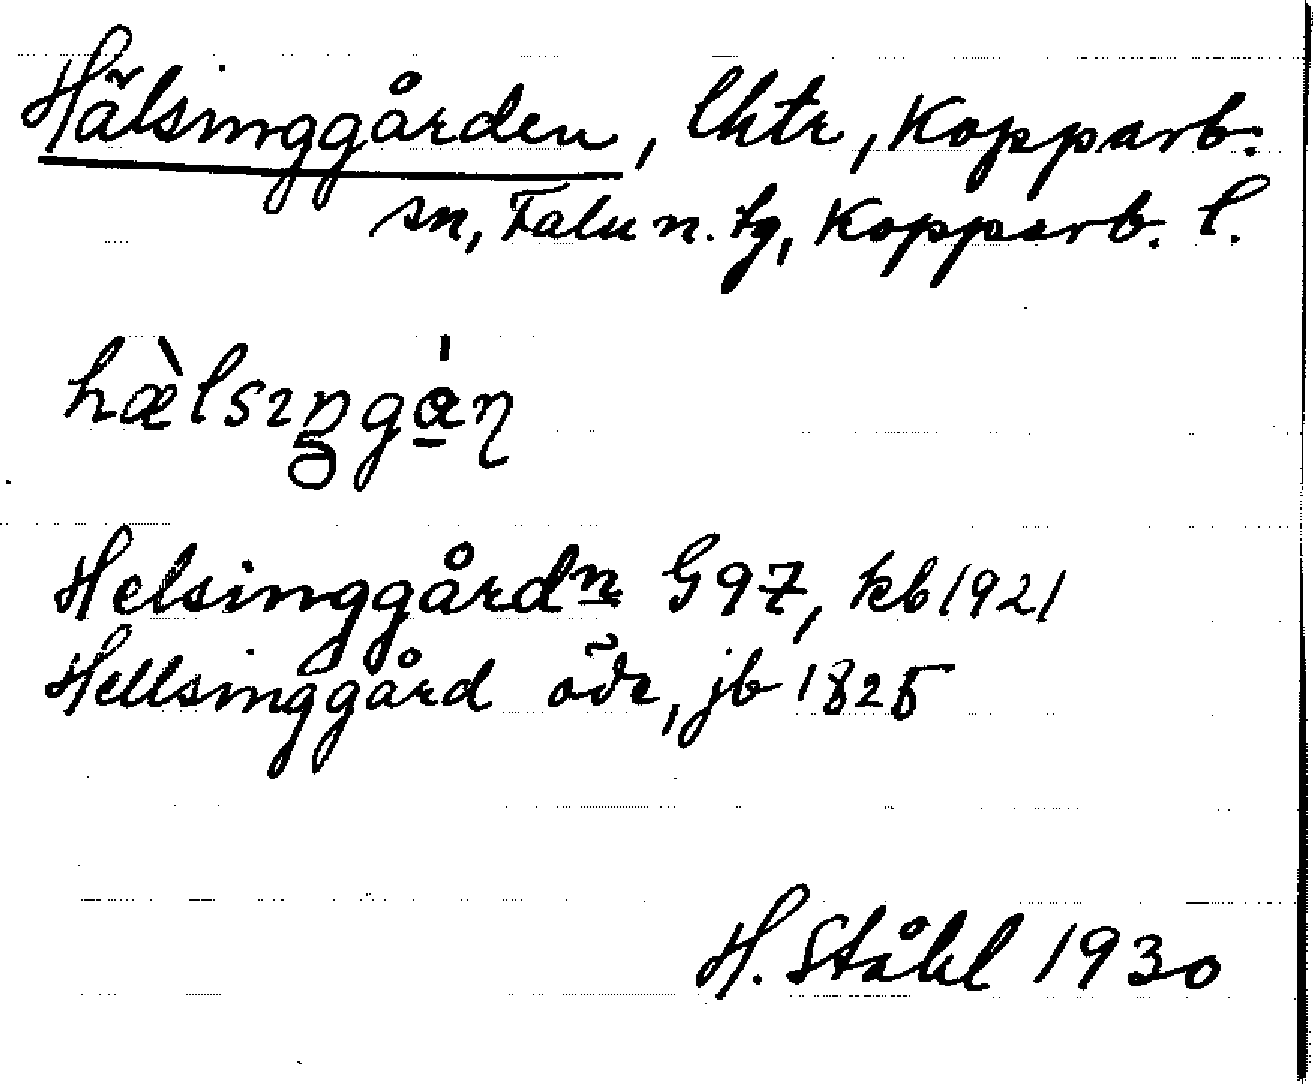 Hälsinggården, lhtr, Kopparb.
sn, Falu n. tg, Kopparb. l.
hæ̀lsıŋga̲̍ɳ
Helsinggårdn G97, kb 1921
Hellsinggård öde, jb 1825
H. Ståhl 1930